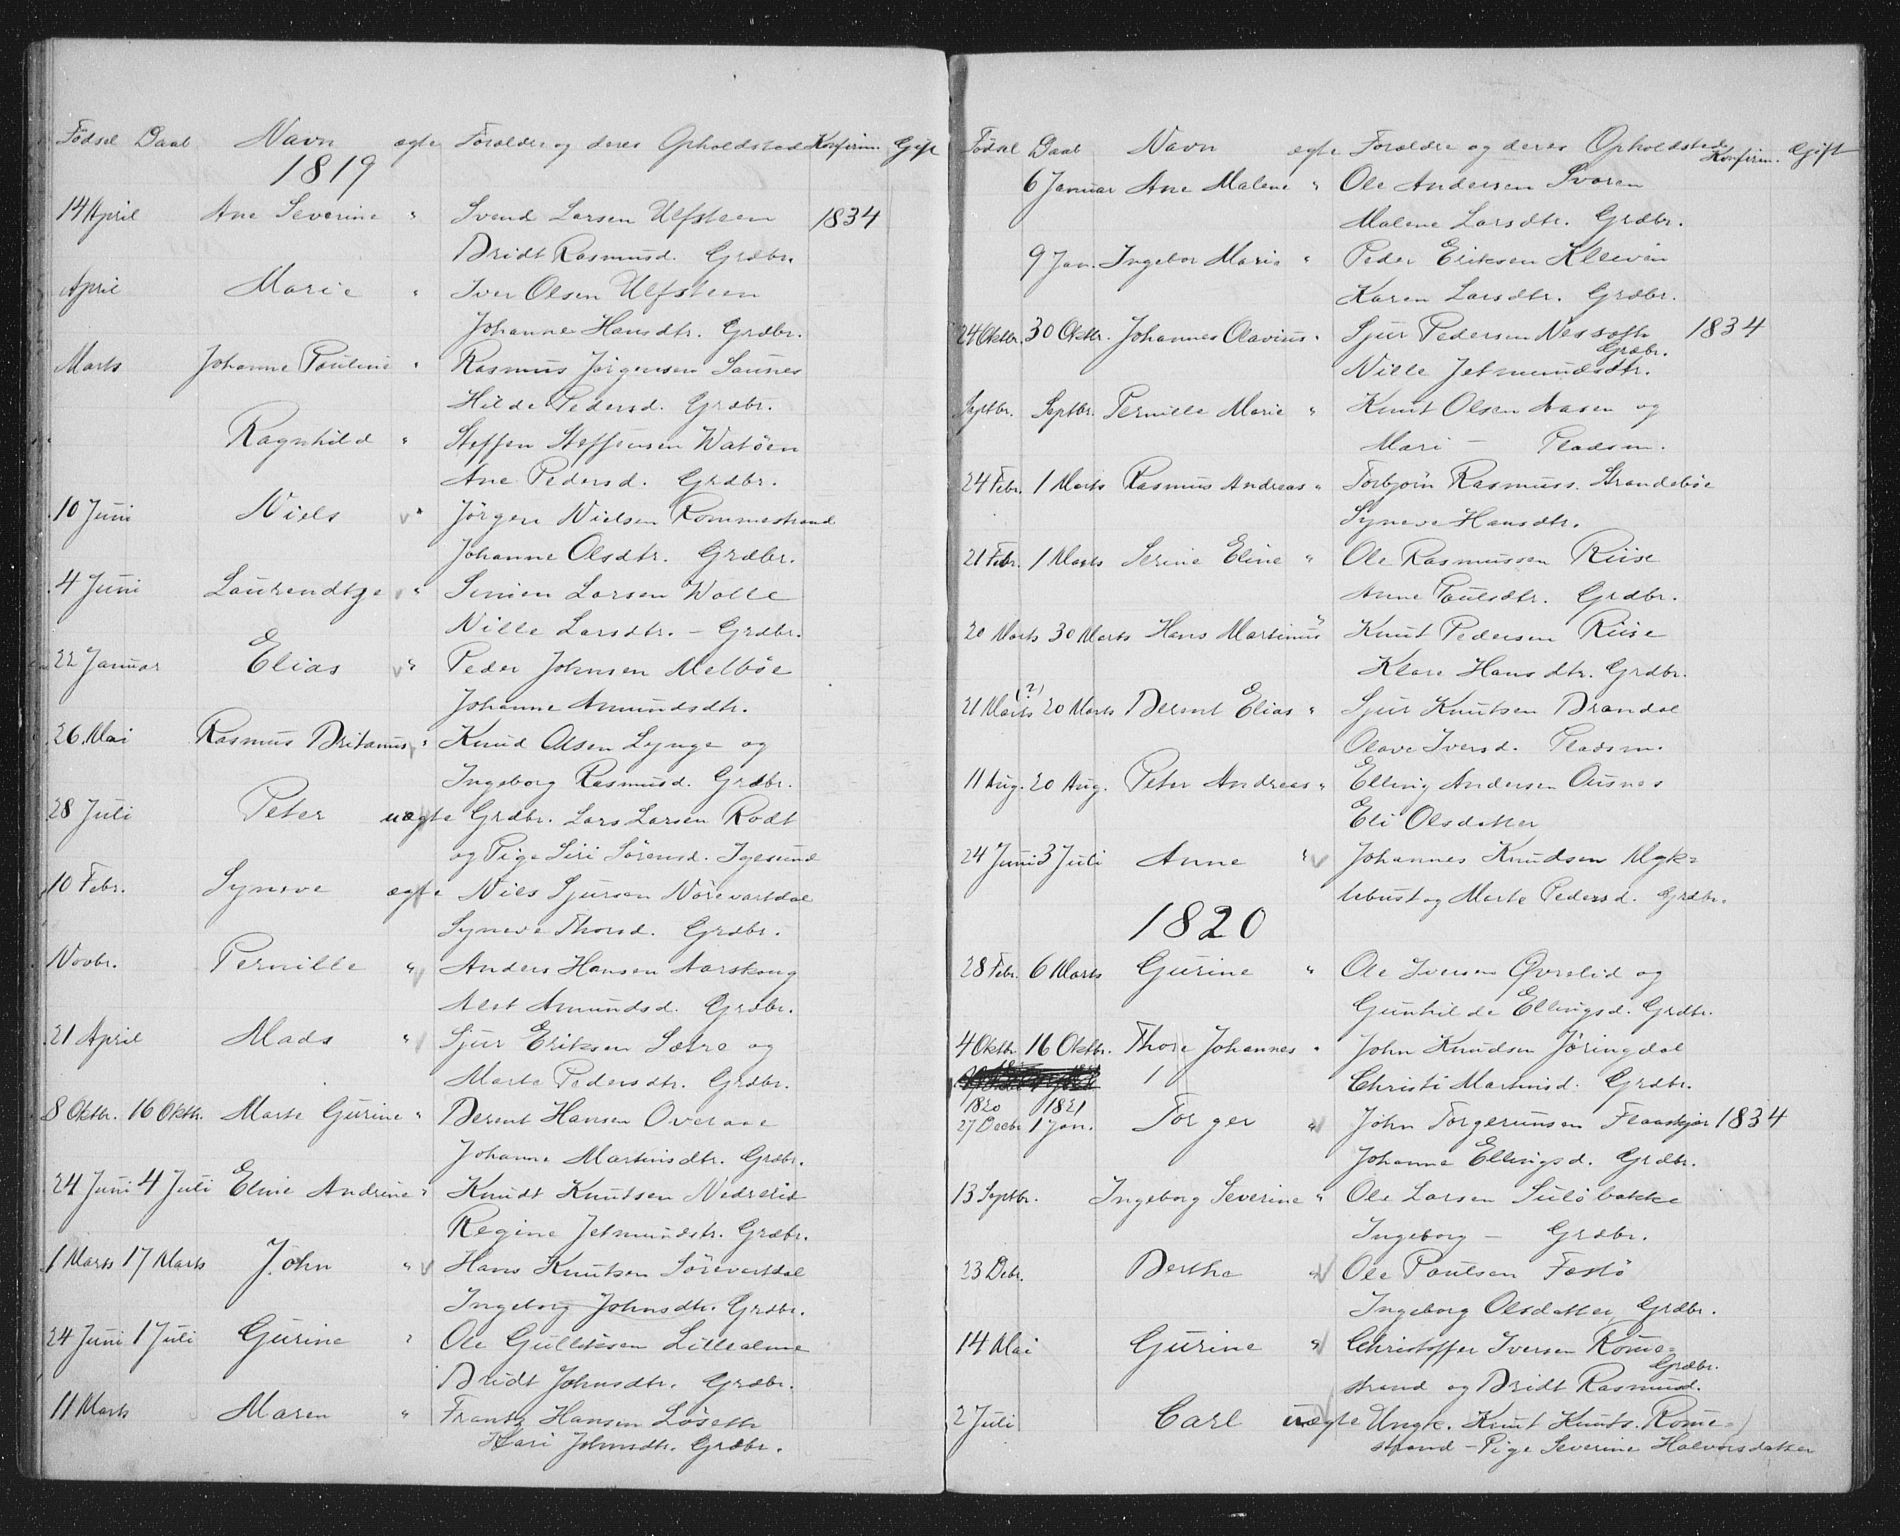 Födsel Daab Navn ægte Forældre og deres Opholdsted Konfirm. Gift
1819
14 April Ane Severine " Svend Larsen Ulfsteen 1834
Bridt Rasmusd. Grdbr.
April Marie " Iver Olsen Ulfsteen
Johanne Hansdtr. Grdbr.
Marts Johanne Pauline " Rasmus Jörgensen Saunes
Hilde Pedersd. Grdbr.
Ragnhild " Steffen Steffensen Watöen
Ane Pedersd. Grdbr.
10 Juni Niels " Jörgen Nielsen Rommestrand
Johanne Olsdtr. Grdbr.
4 Juni Laurendtze " Simen Larsen Wolle
Nille Larsdtr. - Grdbr.
22 Januar Elias " Peder Johnsen Melböe
Johanne Amundsdtr.
26. Mai Rasmus Britanus " Knud Olsen Lynge og
Ingeborg Rasmusd. Grdbr.
28 Juli Peter uægte Grdbr. Lars Larsen Rödt
og Pige Siri Sörensd. Igesund
10 Febr. Syneve ægte Niels Sjursen Nörevartdal
Syneve Thorsd. Grdbr.
Novbr. Pernille " Anders Hansen Aarskoug
Alet Amundsd. Grdbr.
21 April Mads " Sjur Eriksen Sætre og
Marte Pedersdtr. Grdbr.
8 Oktbr. 16 Oktbr. Marte Gurine " Bernt Hansen Overaae
Johanne Martinsdtr. Grdbr.
24 Juni 4 Juli Eline Andrine " Knudt Knutsen Nedrelid
Regine Jetmundstr. Grdbr.
1 Marts 17 Marts John " Hans Knutsen Sörevartdal
Ingeborg Johnsdtr. Grdbr.
24 Juni 1 Juli Gurine " Ole Gulliksen Lillealme
Bridt Johnsdtr. Grdbr.
11 Marts Maren " Frantz Hansen Löseth
Kari Johnsdtr. Grdbr.
Födsel Daab Navn ægte Forældre og deres Opholdsted Konfirm. Gift
6 Januar Ane Malene " Ole Andersen Svoren
Malene Larsdtr. Grdbr.
9 Jan. Ingebor Marie " Peder Eriksen Kleiven
Karen Larsdtr. Grdbr.
24 Oktbr. 30 Oktbr. Johannes Olavius " Sjur Pedersen Nesseth 1834
Grdbr.
Nille Jetmundsdtr.
Septbr. Septbr. Pernille Marie " Knut Olsen Aasen og
Mari - Pladsm.
24 Febr. 1 Marts Rasmus Andreas " Torbjörn Rasmuss. Strandeböe
Syneve Hansdtr.
21 Febr. 1 Marts Serine Eline " Ole Rasmussen Riise
Anne Paulsdtr. Grdbr.
20 Marts 30 Marts Hans Martinus " Knut Pedersen Riise
Klare Hansdtr. Grdbr.
(?)
21 Marts 20 Marts Bernt Elias " Sjur Knutsen Brandal
Olave Iversd. Pladsm.
11 Aug. 20 Aug. Peter Andreas " Elling Andersen Ousnes
Eli Olsdatter
24 Juni 3 Juli Anne " Johannes Knudsen Myk=
lebust og Marte Pedersd. Grdbr.
1820
28 Febr. 6 Marts Gurine " Ole Iversen Øvrelid og
Gunhilde Ellingsd. Grdbr.
4 Oktbr. 16 Oktbr. Thore Johannes " John Knudsen Jöringdal
Christi Martinsd. Grdbr.
1820 1821
27 Decbr. 1 Jan. Torger " John Torgerunsen Flaaskjær 1834
Johanne Ellingsd. Grdbr.
13 Septbr. Ingeborg Severine " Ole Larsen Sulöbakke
Ingeborg - Grdbr.
23 Debr. Berthe " Ole Paulsen Festö
Ingeborg Olsdatter Grdbr.
14 Mai Gurine " Christoffer Iversen Rome=
Grdbr.
strand og Bridt Rasmusd.
2 Juli Carl uægte Ungk. Knut Knuts. Rome=
strand - Pige Severine Halvorsdatter